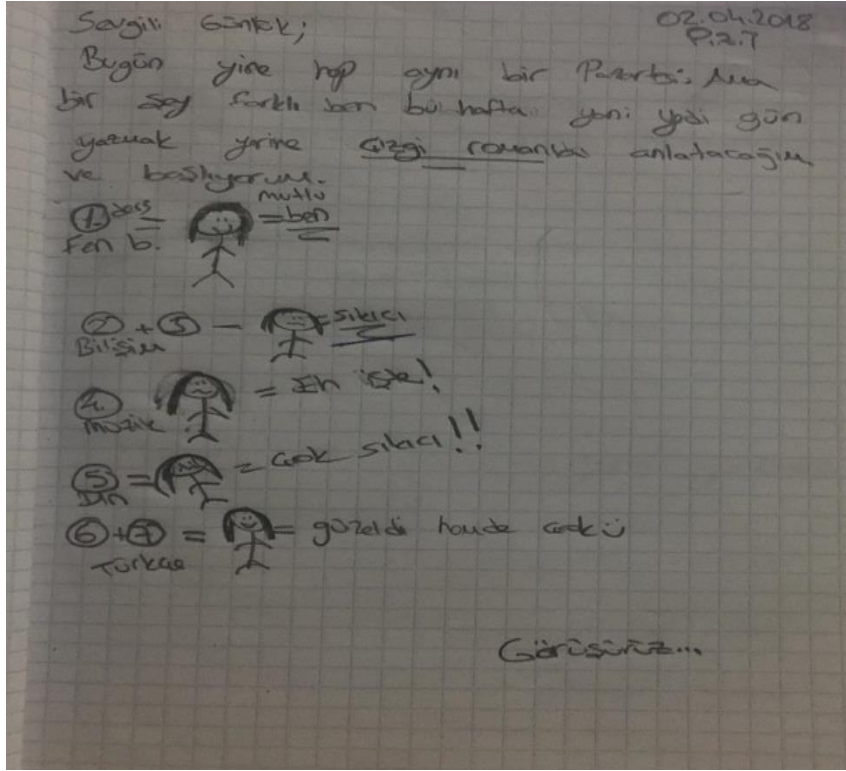 Sevgili Günlük;
02.04.2018
P.z.T
Bugün yine hep aynı bir Pazartesi. Ama
bir şey farklı ben bu hafta yani yedi gün
yazmak yerine çizgi romanla anlatacağım
ve başlıyorum.
1. ders = = mutlu ben
Fen b.
2 + 3 - = sıkıcı
Bilişim
4. = Eh işte!
müzik
5 = = çok sıkıcı!!
Din
6 + 7 = = güzeldi hemde çok ü
Türkçe
Görüşürüz...